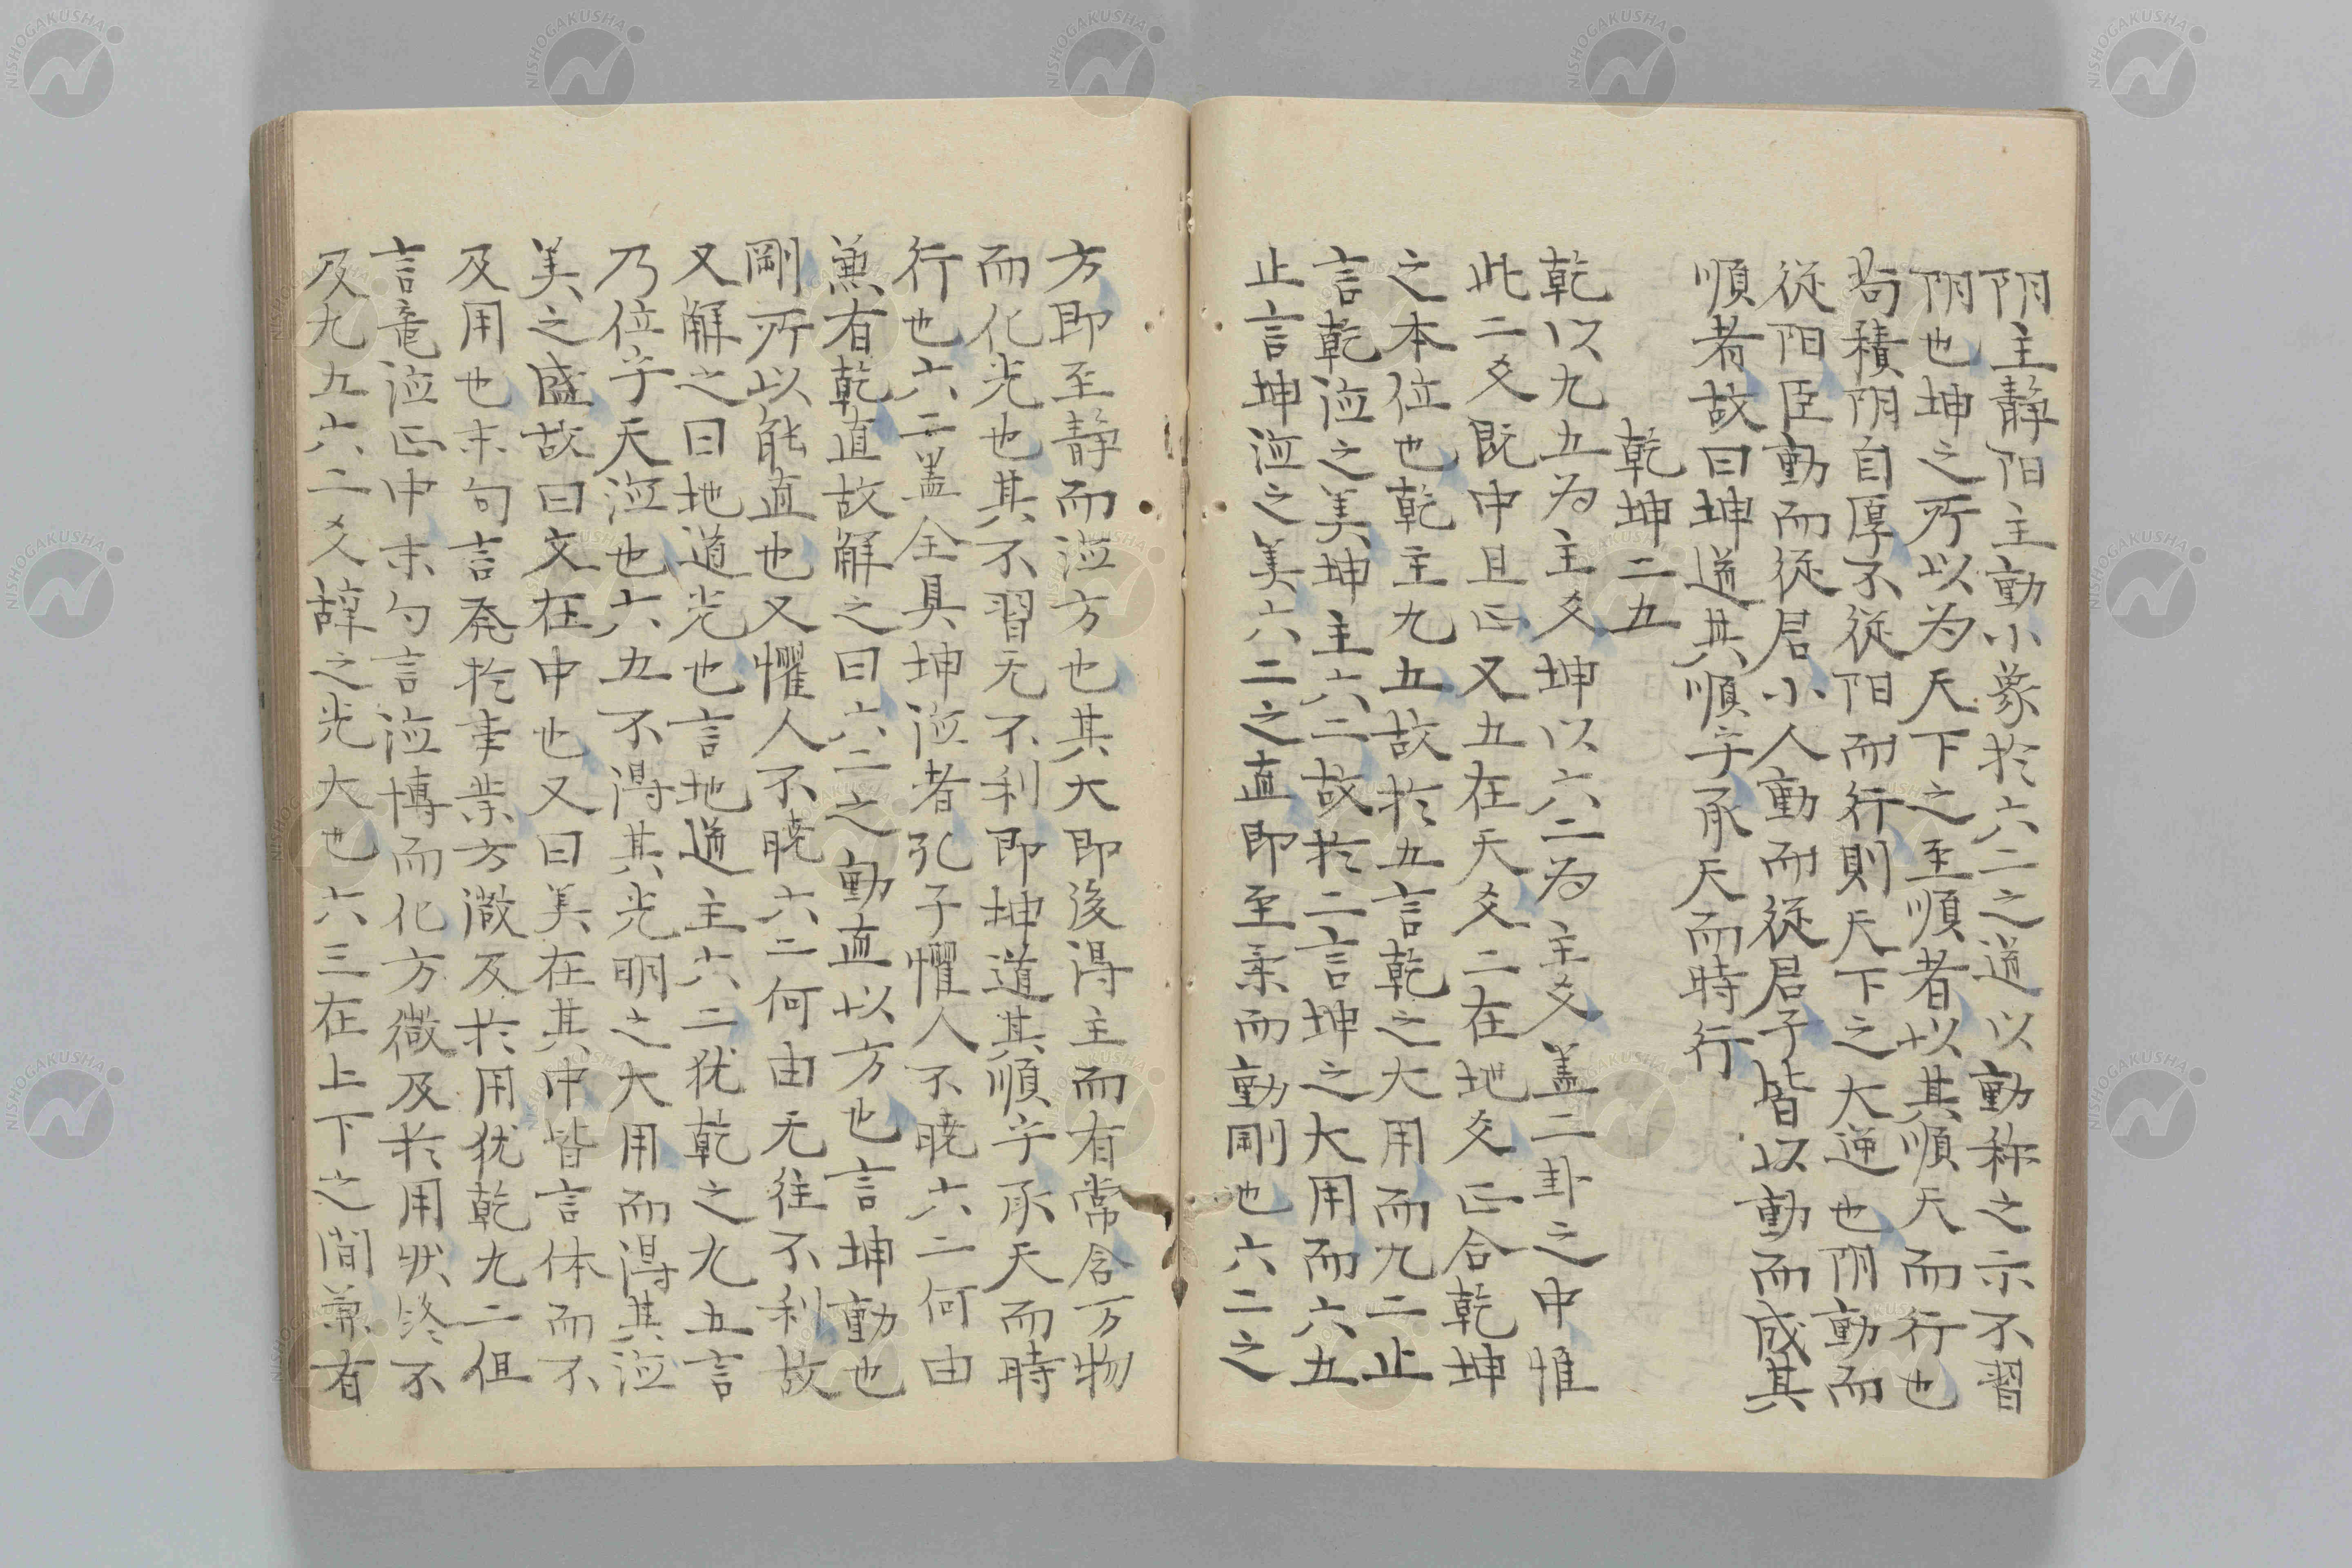 阴主静阳主動小象於六二之道以動称之示不習
阴也坤之所以为天下之至順者以其順天而行也
苟積阴自厚不従阳而行則天下之大逆也阴動而
従阳臣動而従君小人動而従君子皆以動而成其
順者故曰坤道其順乎承天而時行
乾坤二五
乾以九五为主爻坤以六二为主爻盖二卦之中惟
此二爻既中且正又五在天爻二在地爻正合乾坤
之本位也乾主九五故於五言乾之大用而九二止
言乾徳之美坤主六二故於二言坤之大用而六五
止言坤徳之美六二之直即至柔而動剛也六二之
方即至静而徳方也其大即後得主而有常含万物
而化光也其不習无不利即坤道其順乎承天而時
行也六二盖全具坤徳者孔子懼人不暁六二何由
兼有乾直故解之曰六二之動直以方也言坤動也
剛所以能直也又懼人不暁六二何由无往不利故
又解之曰地道光也言地道主六二犹乾之九五言
乃位乎天徳也六五不得其光明之大用而得其徳
美之盛故曰文在中也又曰美在其中皆言体而不
及用也末句言発於事業方漑及於用犹乾九二但
言竜徳正中末勺言徳博而化方微及於用状终不
及九五六二爻辞之光大也六三在上下之間兼有
NISHOGAKUSHA